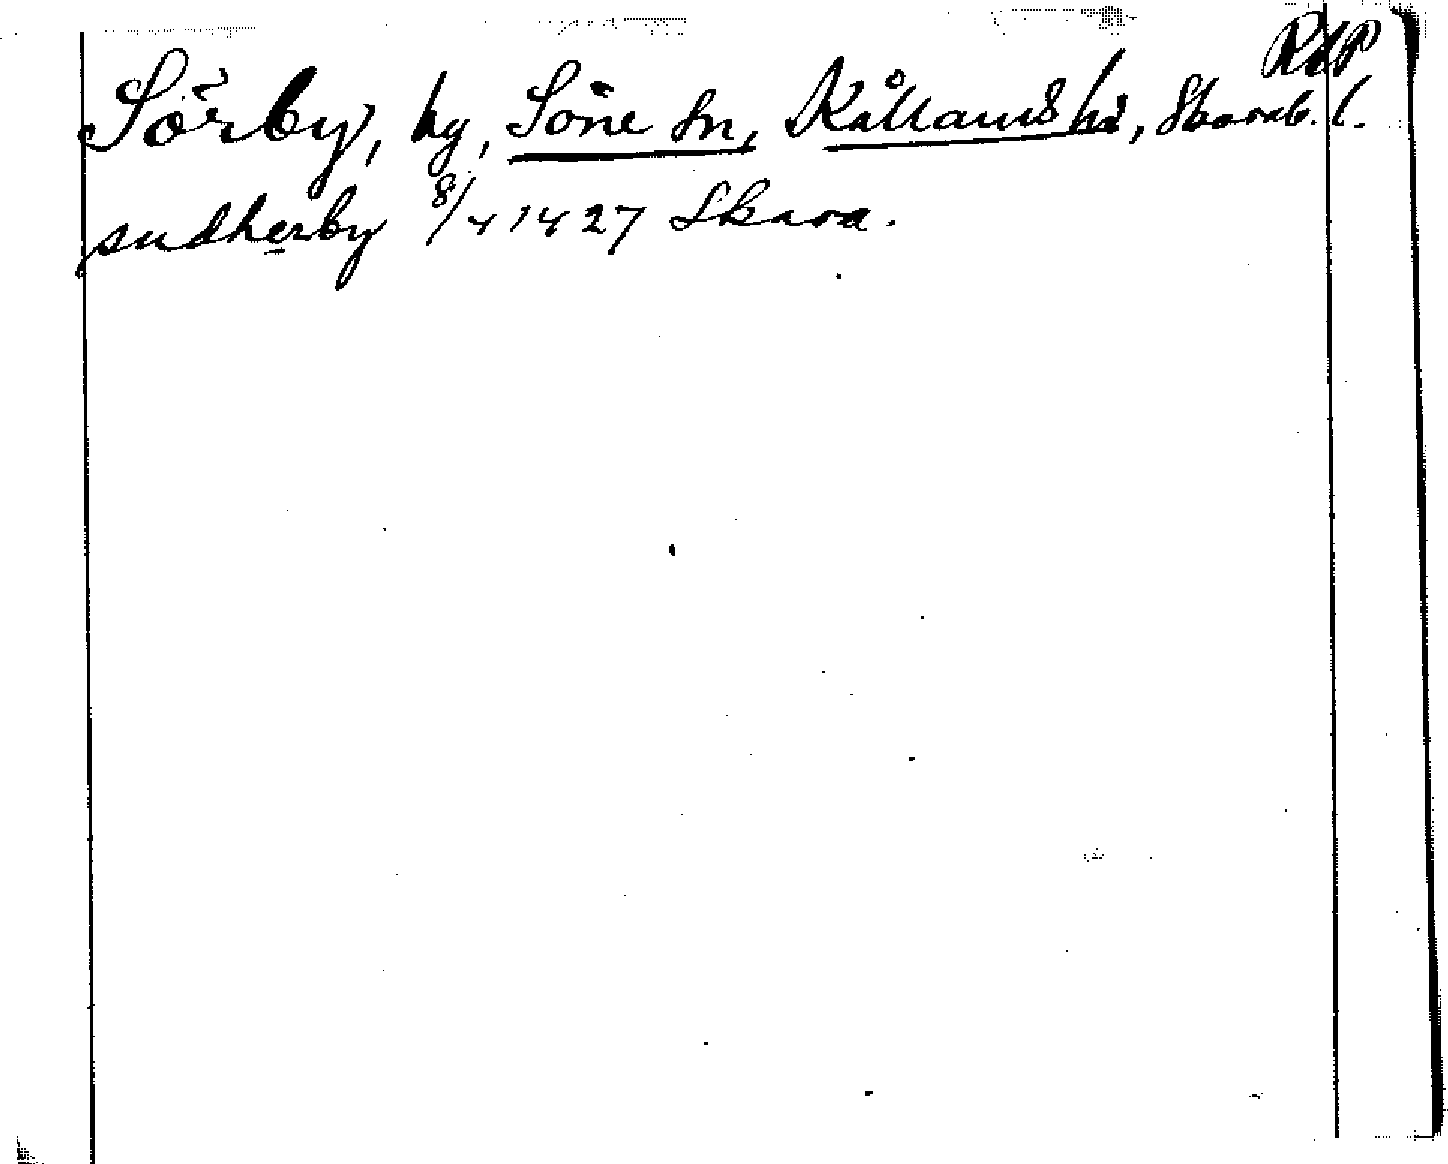 RAP
Sörby, by, Söne sn, Kållands hd, Skarab. l.
sudherby 8/4 1427 Skara.